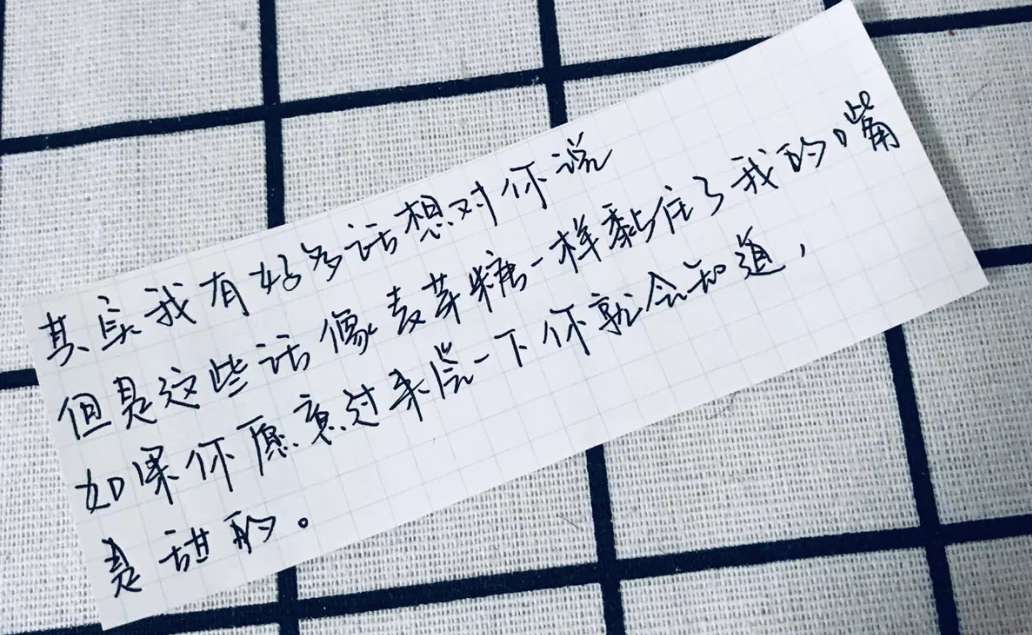 其实我有好多话想对你说
但是这些话像麦芽糖一样黏住了我的嘴
如果你愿意过来尝一下你就会知道，
是甜的。